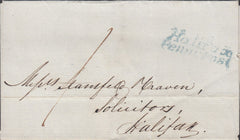 Halifax
Penny Post
Messrs Stansfeld & Craven,
Solicitors,
Halifax